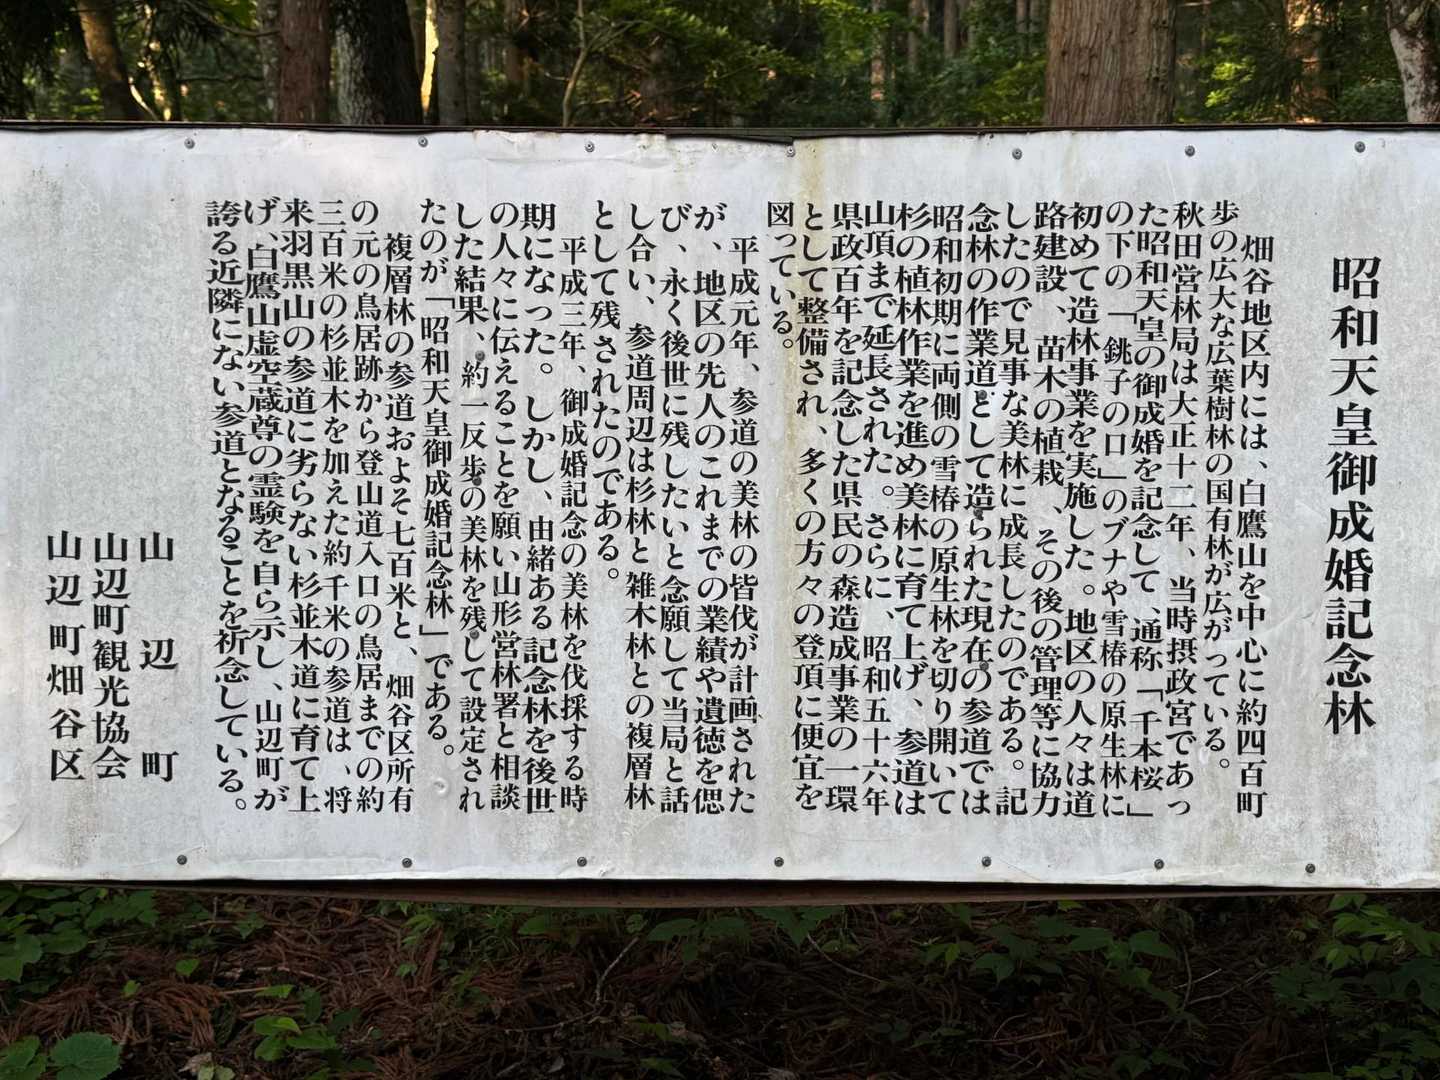 昭和天皇御成婚記念林
畑谷地区内には、白鷹山を中心に約四百町
歩の広大な広葉樹林の国有林が広がっている。
秋田営林局は大正十二年、当時摂政宮であっ
た昭和天皇の御成婚を記念して、通称「千本桜」
の下の「銚子の口」のブナや雪椿の原生林に
初めて造林事業を実施した。地区の人々は道
路建設、苗木の植栽、その後の管理等に協力
したので見事な美林に成長したのである。記
念林の作業道として造られた現在の参道では
昭和初期に両側の雪椿の原生林を切り開いて
杉の植林作業を進め美林に育て上げ、参道は
山頂まで延長された。さらに、昭和五十六年
県政百年を記念した県民の森造成事業の一環
として整備され、多くの方々の登頂に便宜を
図っている。
平成元年、参道の美林の皆伐が計画された
が、地区の先人のこれまでの業績や遺徳を偲
び、永く後世に残したいと念願して当局と話
し合い、参道周辺は杉林と雑木林との複層林
として残されたのである。
平成三年、御成婚記念の美林を伐採する時
期になった。しかし、由緒ある記念林を後世
の人々に伝えることを願い山形営林署と相談
した結果、約一反歩の美林を残して設定され
たのが「昭和天皇御成婚記念林」である。
複層林の参道およそ七百米と、畑谷区所有
の元の鳥居跡から登山道入口の鳥居までの約
三百米の杉並木を加えた約千米の参道は、将
来羽黒山の参道に劣らない杉並木道に育て上
げ、白鷹山虚空蔵尊の霊験を自ら示し、山辺町が
誇る近隣にない参道となることを祈念している。
山辺町
山辺町観光協会
山辺町畑谷区